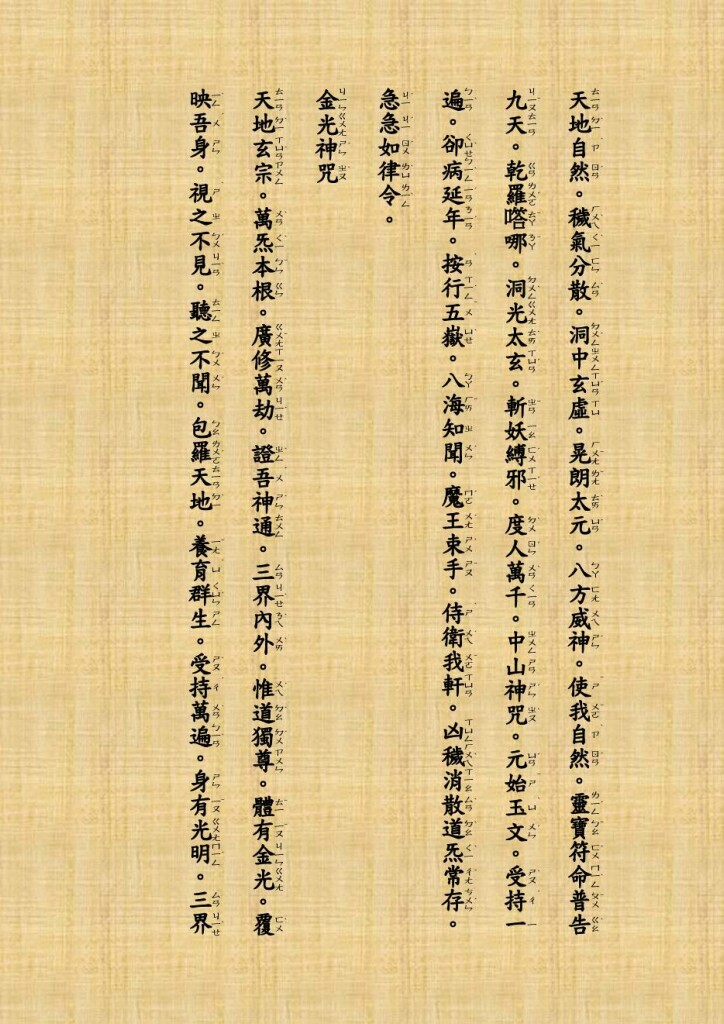 天地自然。穢氣分散。洞中玄虛。晃朗太元。八方威神。使我自然。靈寶符命普告
九天。乾羅嗒哪。洞光太玄。斬妖縛邪。度人萬千。中山神咒。元始玉文。受持一
遍。卻病延年。按行五嶽。八海知聞。魔王束手。侍衛我軒。凶穢消散道炁常存。
急急如律令。
金光神咒
天地玄宗。萬炁本根。廣修萬劫。證吾神通。三界內外。惟道獨尊。體有金光。覆
映吾身。視之不見。聽之不聞。包羅天地。養育群生。受持萬遍。身有光明。三界